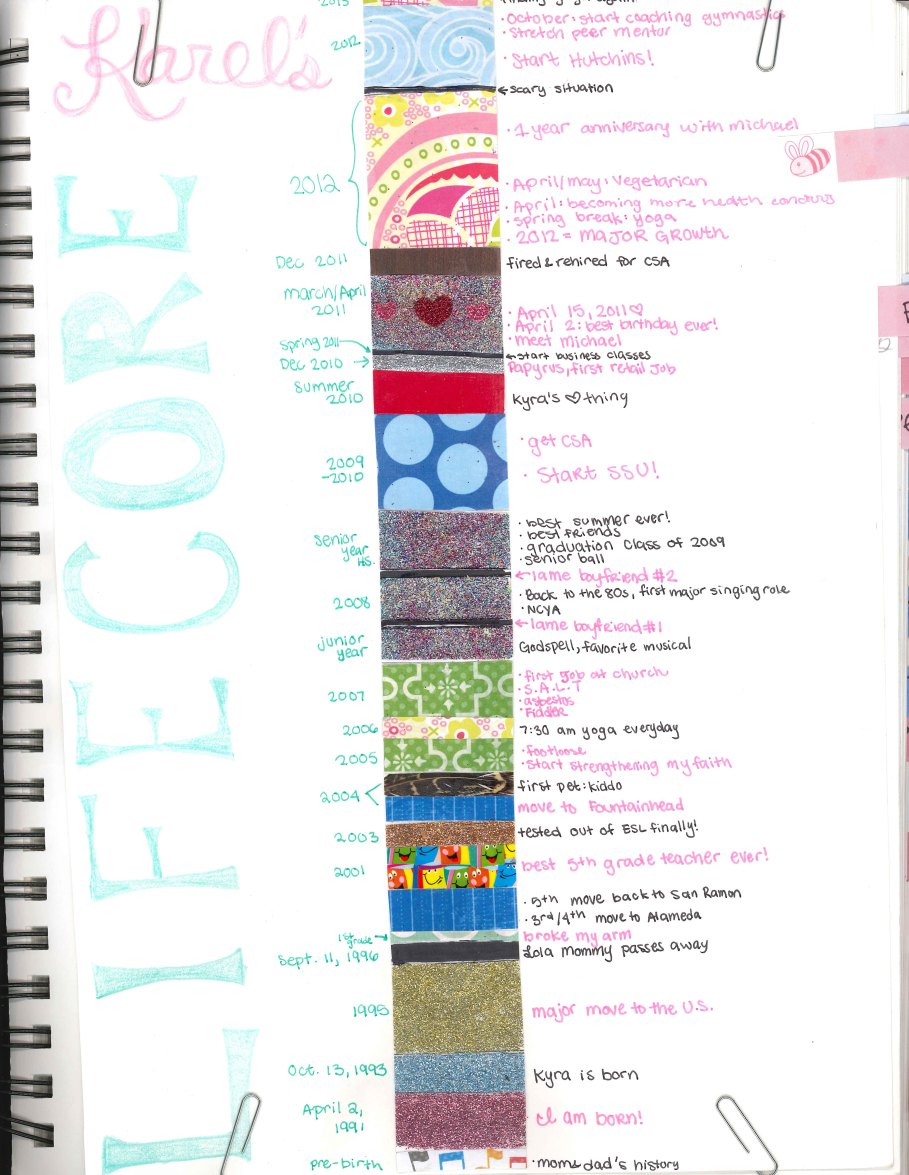 2013
October: start coaching gymnastics
Stretch peer mentor
2012
Start Hutchins!
Karel's
scary situation
1 year anniversary with michael
2012
April/may: Vegetarian
April: becoming more health
spring break: yoga
2012 = MAJOR GROWTH
Dec 2011
fired & rehired for CSA
march/April
2011
April 15, 2011♡
April 2: best birthday ever!
meet michael
spring 2011
start business classes
Dec 2010
Papyrus, first retail job
summer
2010
Kyra's ♡ thing
get CSA
2009
-2010
Start SSU!
senior
year
HS.
best summer ever!
best friends
graduation Class of 2009
senior ball
lame boyfriend #2
2008
Back to the 80s, first major singing role
NCYA
lame boyfriend #1
junior
year
Godspell, favorite musical
2007
first job at church
S.A.L.T
asbestos
Fiddler
2006
7:30 am yoga everyday
2005
footloose
start strengthening my faith
2004
first pet: kiddo
move to Fountainhead
2003
tested out of ESL finally!
2001
best 5th grade teacher ever!
5th move back to San Ramon
3rd/4th move to Alameda
1st
grade
broke my arm
Sept. 11, 1996
Lola Mommy passes away
1995
major move to the U.S.
Oct. 13, 1993
Kyra is born
April 2,
1991
I am born!
pre-birth
mom & dad's history
LIFE CORE